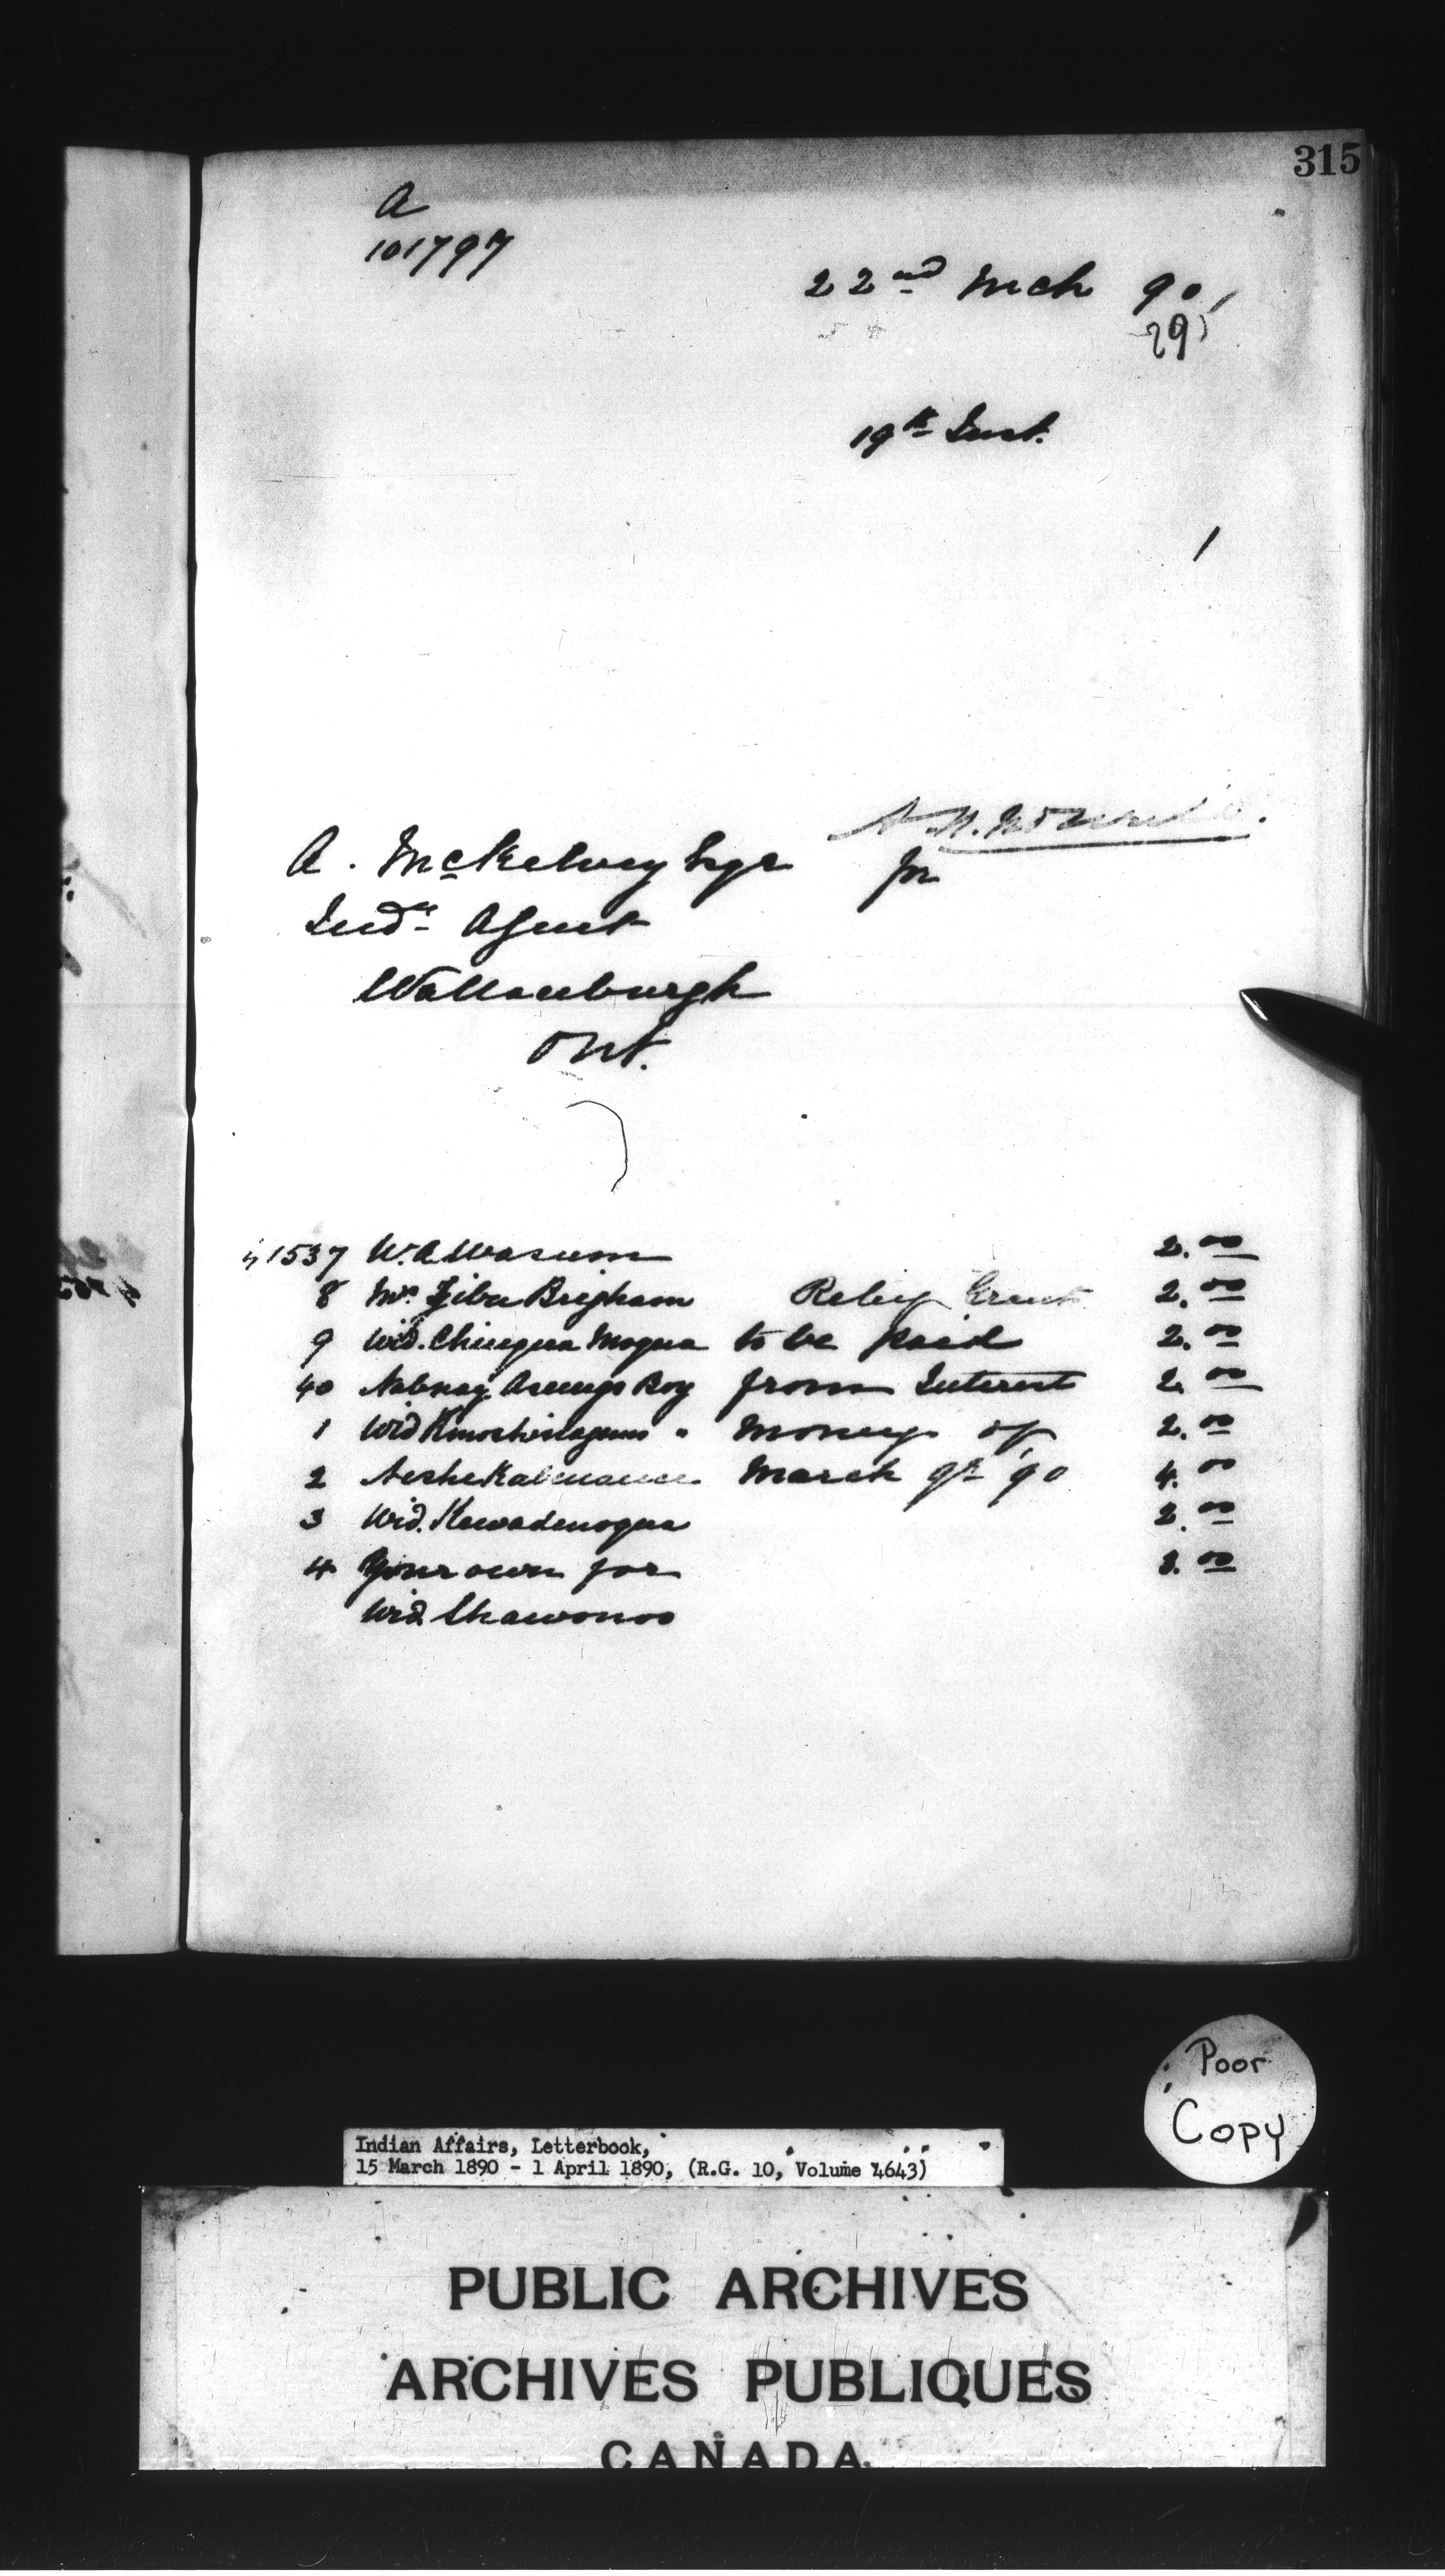 315
A
101797
22nd Mch 90
29
19th Inst.
A. McKelvey Esqr
for
Indn Agent
Wallaceburgh
Ont.
1537 W.A. Wasum 2.00
8 Mrs Ziba Brigham Relief Grant 2.00
9 Wid. Chingua Moqua to be paid 2.00
40 from Interest 2.00
1 Wid " Money of 2.00
2 March qr 90 4.00
3 Wid. Kewadenoqua 2.00
4 Your own for 00
Wid. Shawonoo
Poor
Copy
Indian Affairs, Letterbook,
15 March 1890 - 1 April 1890, (R.G. 10, Volume 4643)
PUBLIC ARCHIVES
ARCHIVES PUBLIQUES
CANADA